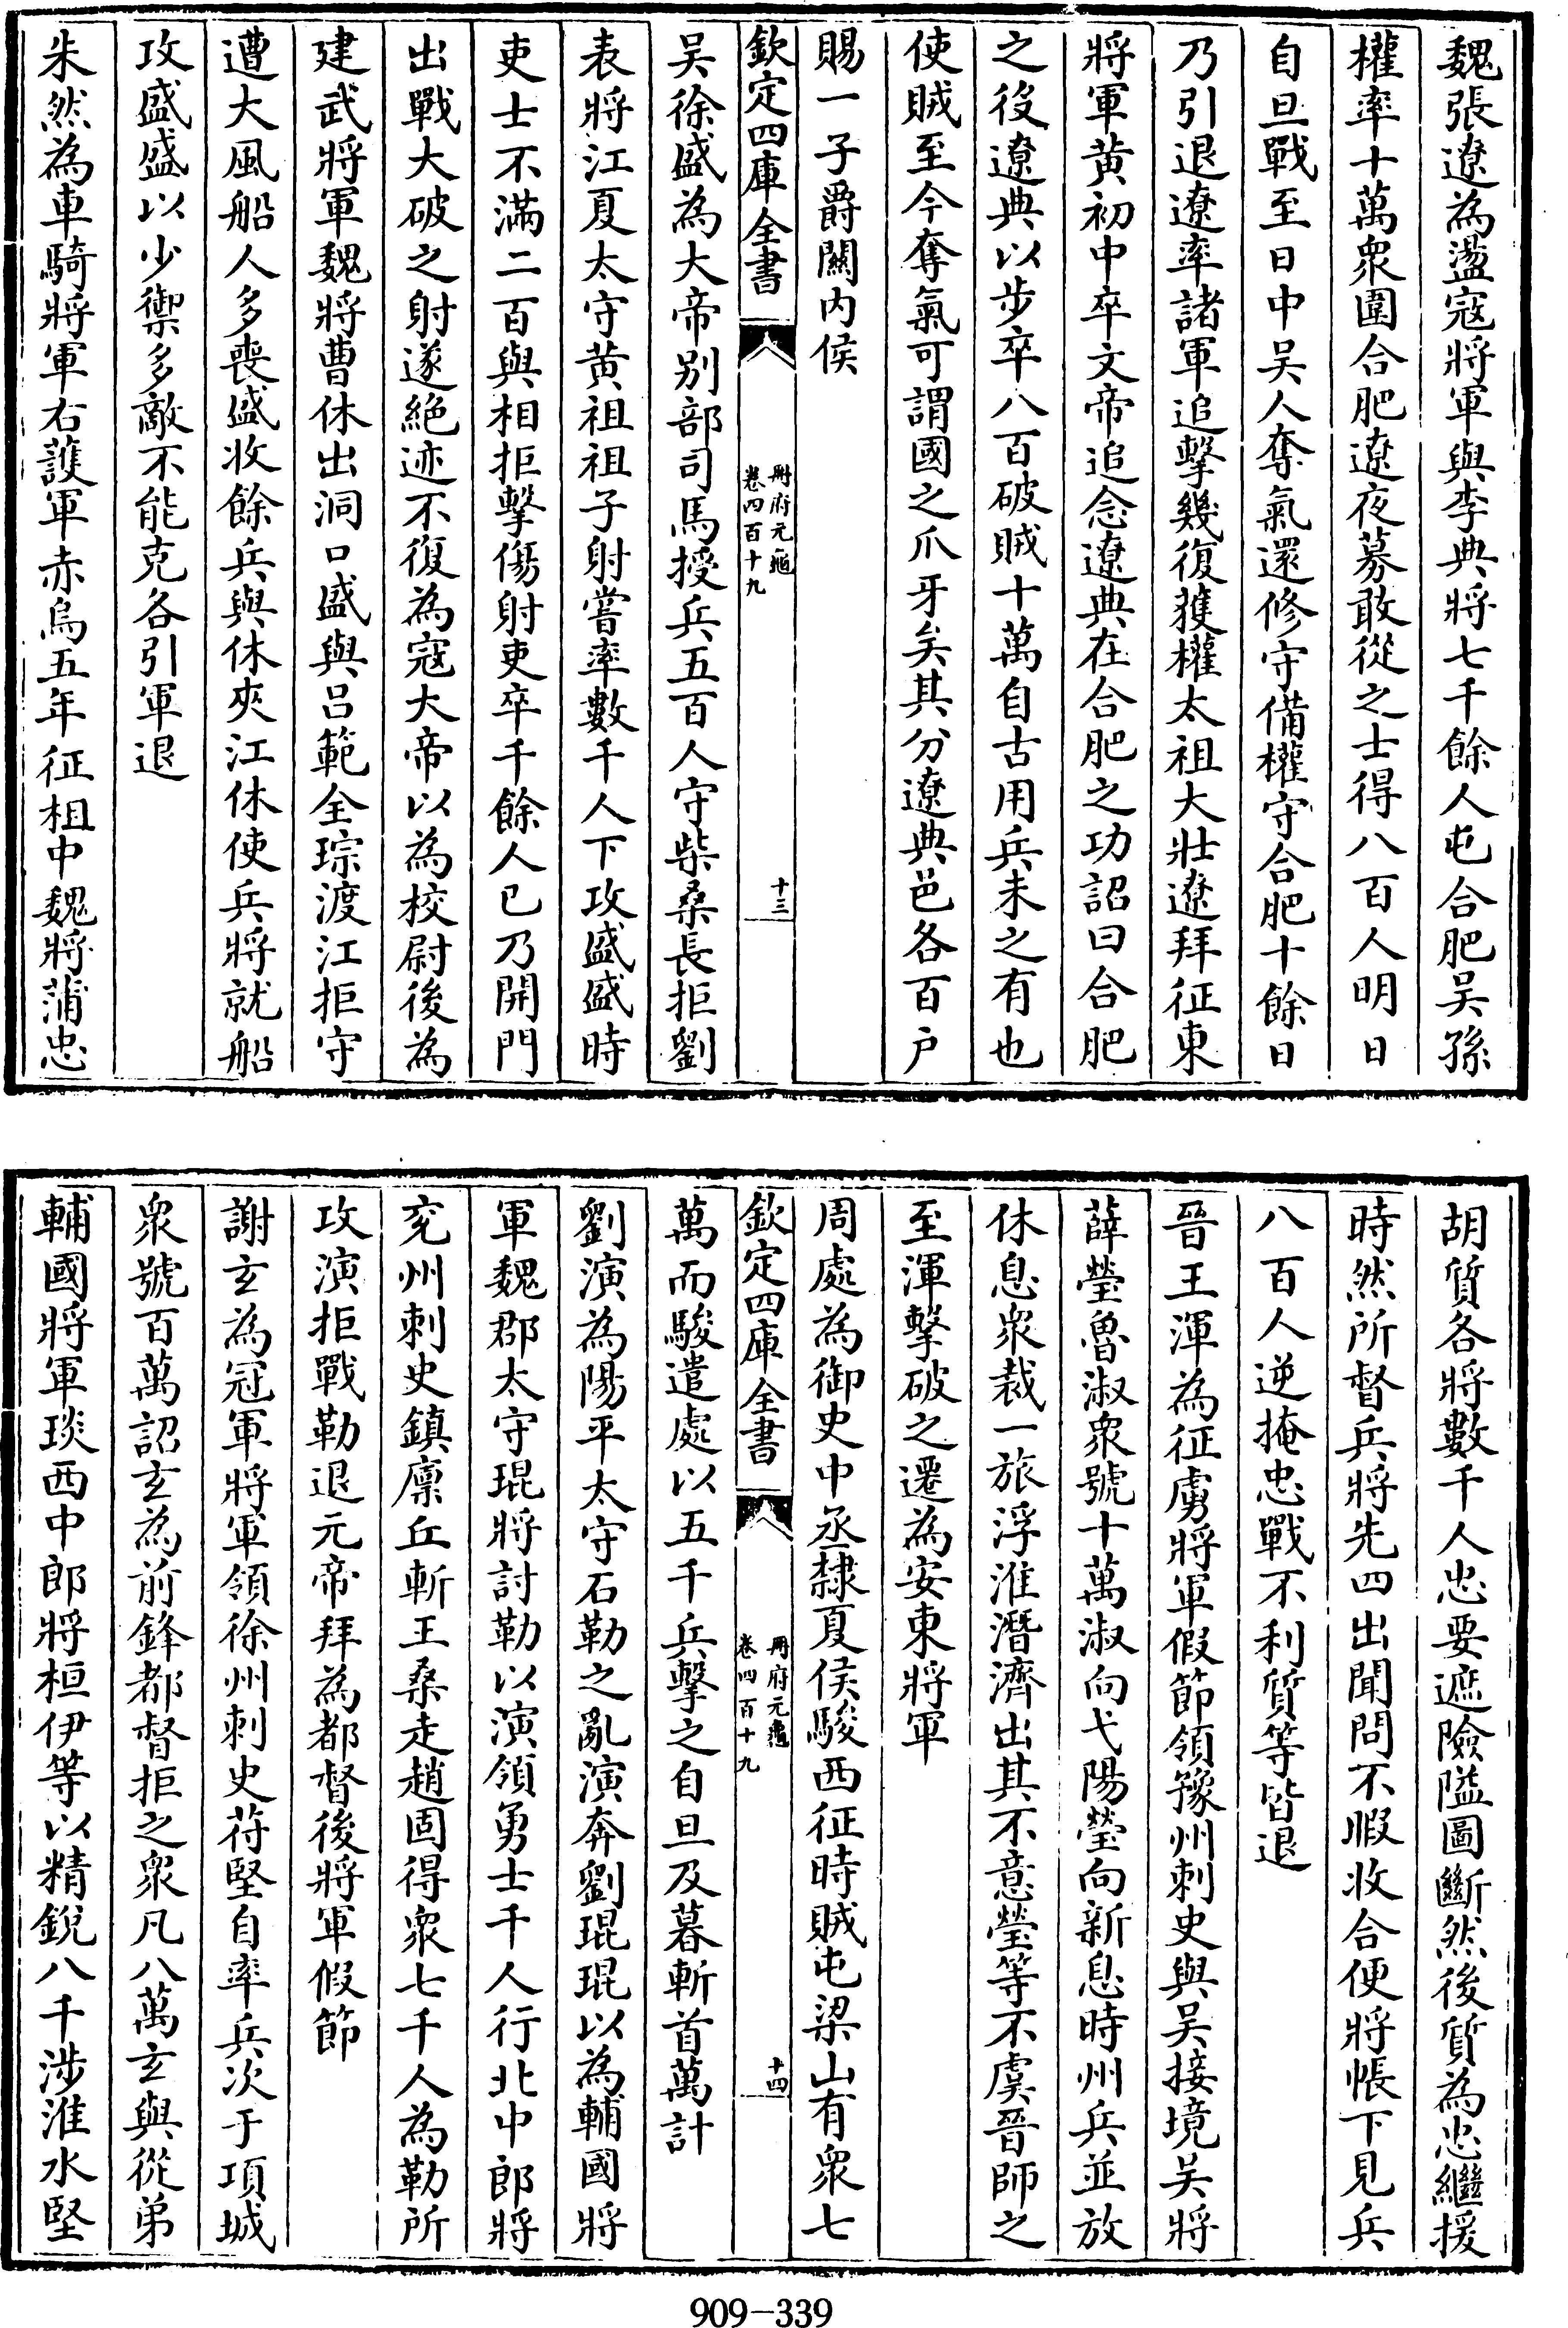 魏張遼為盪寇將軍與李典將七千餘人屯合肥吳孫
權率十萬衆圍合肥遼夜募敢從之士得八百人明日
自旦戰至日中吳人奪氣還修守備權守合肥十餘日
乃引退遼率諸軍追擊幾復獲權太祖大壯遼拜征東
將軍黄初中卒文帝追念遼典在合肥之功詔曰合肥
之役遼典以步卒八百破賊十萬自古用兵未之有也
使賊至今奪氣可謂國之爪牙矣其分遼典邑各百户
賜一子爵關内侯
欽定四庫全書
冊府元龜
卷四百十九
十三
吳徐盛為大帝别部司馬授兵五百人守柴桑長拒劉
表將江夏太守黄祖祖子射嘗率數千人下攻盛盛時
吏士不滿二百與相拒擊傷射吏卒千餘人已乃開門
出戰大破之射遂絶迹不復為寇大帝以為校尉後為
建武將軍魏將曹休出洞口盛與吕範全琮渡江拒守
遭大風船人多喪盛收餘兵與休夾江休使兵將就船
攻盛盛以少禦多敵不能克各引軍退
朱然為車騎將軍右護軍赤烏五年征柤中魏將蒲忠
胡質各將數千人忠要遮險隘圖斷然後質為忠繼援
時然所督兵將先四出聞問不暇收合便將帳下見兵
八百人逆掩忠戰不利質等皆退
晉王渾為征虜將軍假節領豫州刺史與吳接境吳將
薛瑩魯淑衆號十萬淑向弋陽瑩向新息時州兵並放
休息衆裁一旅浮淮潛濟出其不意瑩等不虞晉師之
至渾擊破之遷為安東將軍
周處為御史中丞隸夏侯駿西征時賊屯梁山有衆七
欽定四庫全書
冊府元龜
卷四百十九
十四
萬而駿遣處以五千兵擊之自旦及暮斬首萬計
劉演為陽平太守石勒之亂演奔劉琨琨以為輔國將
軍魏郡太守琨將討勒以演領勇士千人行北中郎將
兖州刺史鎮廩丘斬王桑走趙固得衆七千人為勒所
攻演拒戰勒退元帝拜為都督後將軍假節
謝玄為冠軍將軍領徐州刺史苻堅自率兵次于項城
衆號百萬詔玄為前鋒都督拒之衆凡八萬玄與從弟
輔國將軍琰西中郎將桓伊等以精銳八千涉淮水堅
909-339